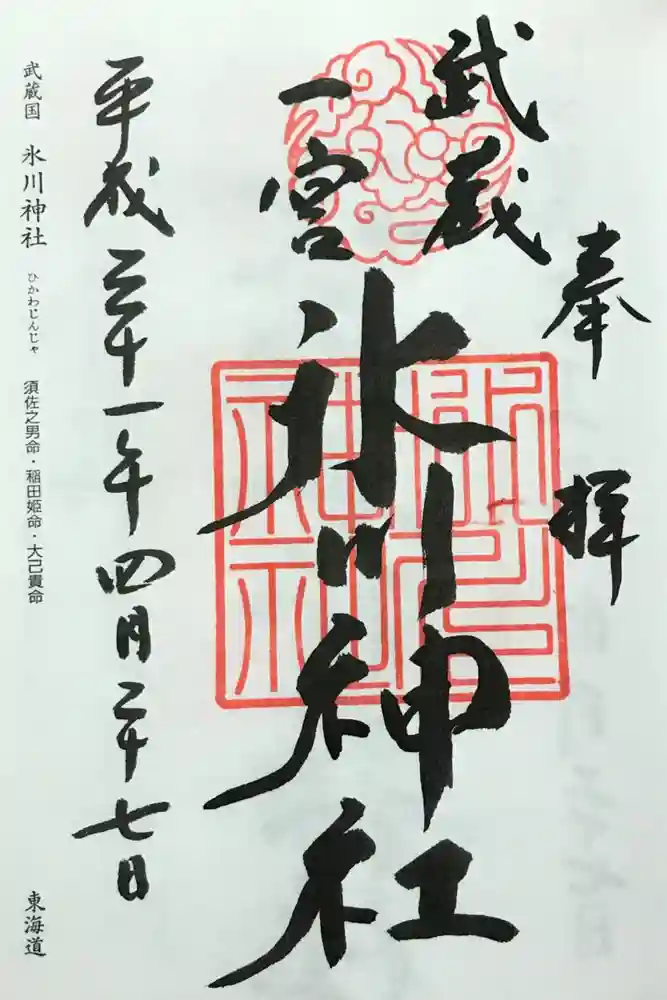 奉拝
武蔵
一宮
氷川神社
平成三十一年四月二十七日
武蔵国 氷川神社 ひかわじんじゃ 須佐之男命・稲田姫命・大己貴命 東海道